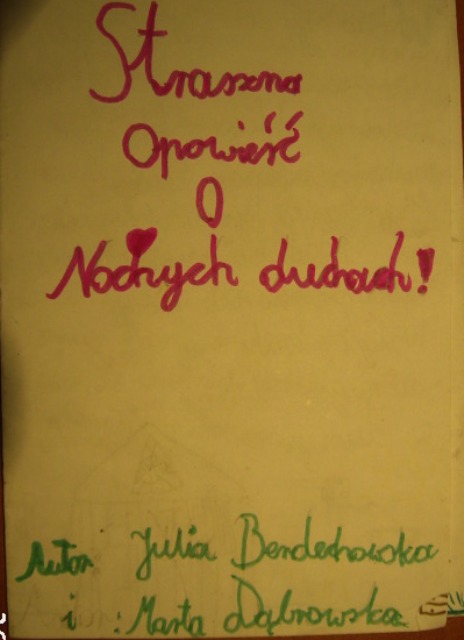 Straszna
Opowieść
O
Nocnych duchach!
Autor Julia Bendechowska
i : Marta Dąbrowska